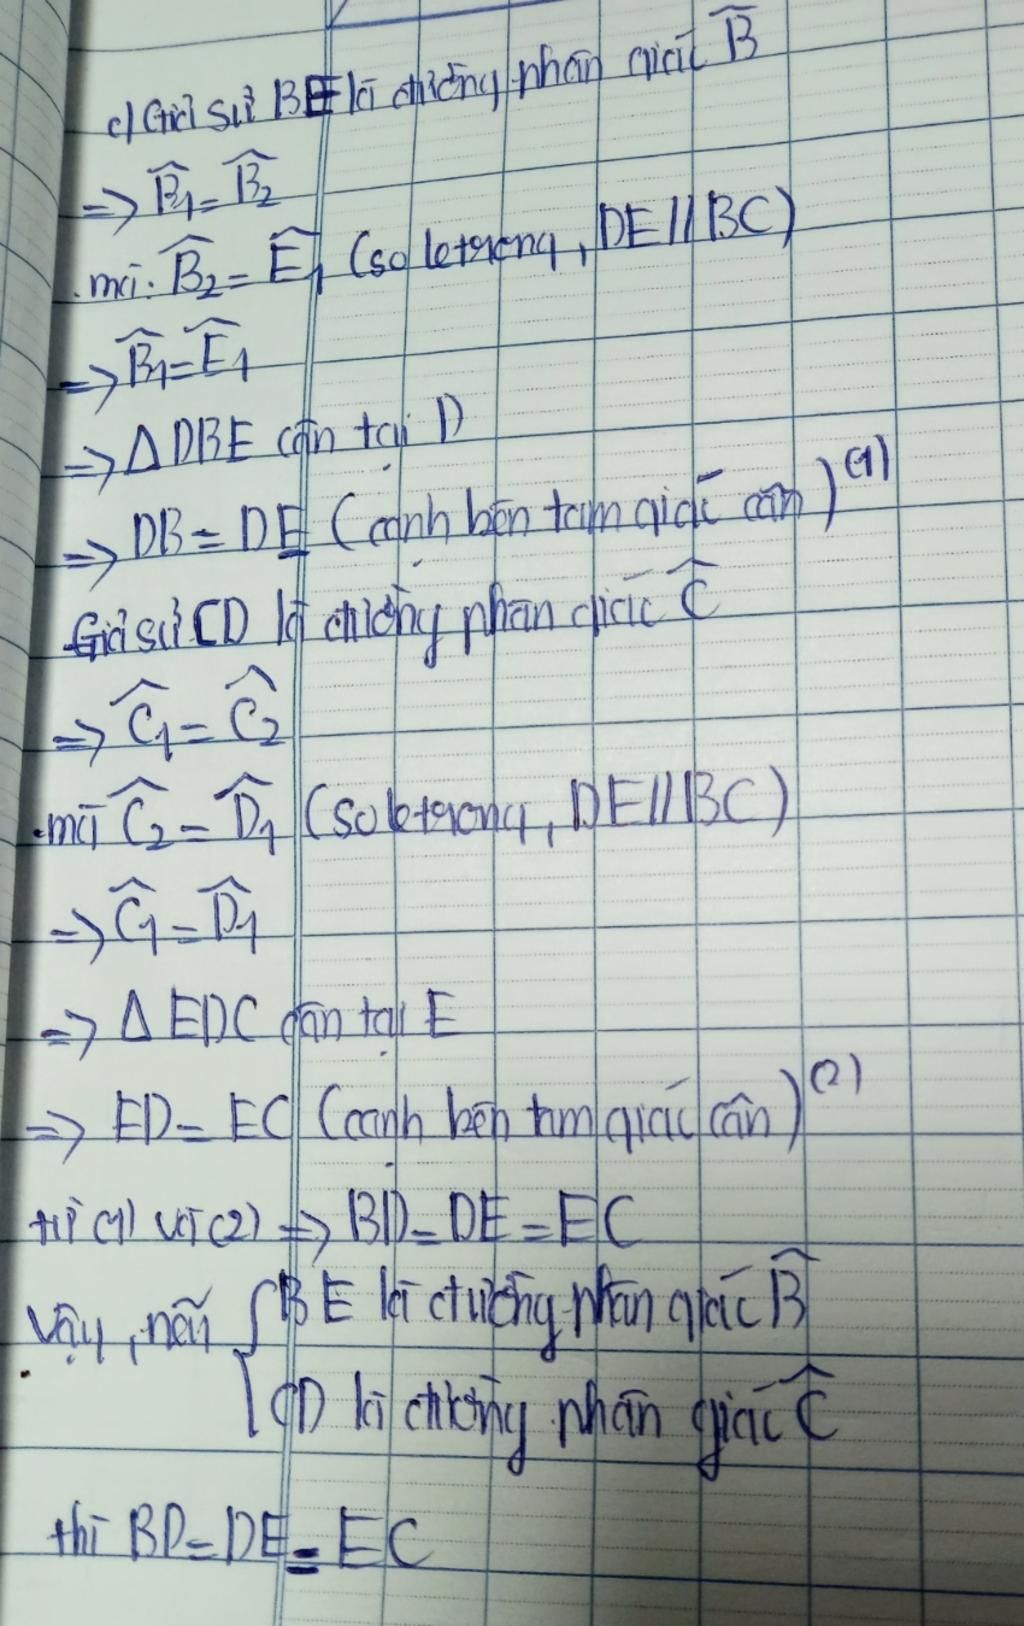 c) Giả sử BE là đường phân giác B̂
=> B̂₁ = B̂₂
mà: B̂₂ = Ê₁ (so le trong, DE // BC)
=> B̂₁ = Ê₁
=> Δ DBE cân tại D
=> DB = DE (cạnh bên tam giác cân) (1)
Giả sử CD là đường phân giác Ĉ
=> Ĉ₁ = Ĉ₂
mà Ĉ₂ = D̂₁ (so le trong, DE // BC)
=> Ĉ₁ = D̂₁
=> Δ EDC cân tại E
=> ED = EC (cạnh bên tam giác cân) (2)
từ (1) và (2) => BD = DE = EC
Vậy, nếu { BE là đường phân giác B̂
CD là đường phân giác Ĉ
thì BD = DE = EC